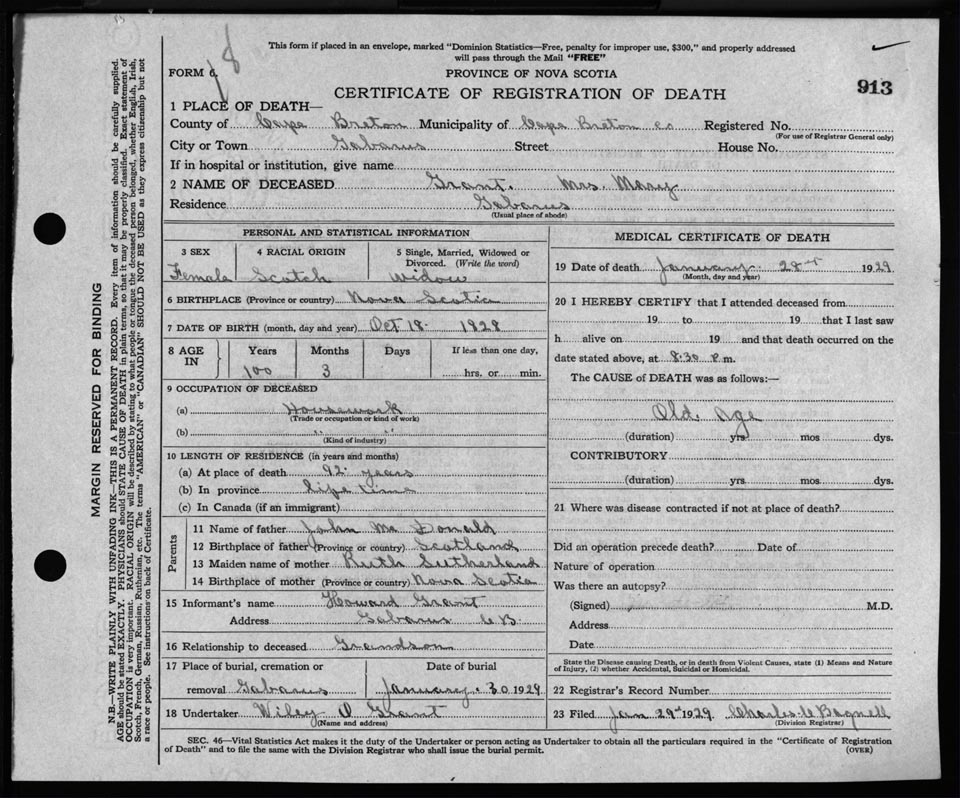 This form if placed in an envelope, marked "Dominion Statistics—Free, penalty for improper use, $300," and properly addressed
will pass through the Mail "FREE"
FORM 6.
PROVINCE OF NOVA SCOTIA
CERTIFICATE OF REGISTRATION OF DEATH
913
1 PLACE OF DEATH—
County of Cape Breton Municipality of Cape Breton co Registered No.
(For use of Registrar General only)
City or Town Gabarus Street House No.
If in hospital or institution, give name
2 NAME OF DECEASED Grant. Mrs. Mary
Residence Gabarus
(Usual place of abode)
PERSONAL AND STATISTICAL INFORMATION
3 SEX 4 RACIAL ORIGIN 5 Single, Married, Widowed or
Divorced. (Write the word)
Female Scotch Widow
6 BIRTHPLACE (Province or country) Nova Scotia
7 DATE OF BIRTH (month, day and year) Oct 18 1928
8 AGE IN Years Months Days If less than one day,
100 3 hrs. or min.
9 OCCUPATION OF DECEASED
(a) Housework
(Trade or occupation or kind of work)
(b) " "
(Kind of industry)
10 LENGTH OF RESIDENCE (in years and months)
(a) At place of death 92 years
(b) In province life time
(c) In Canada (if an immigrant)
Parents
11 Name of father John Mc Donald
12 Birthplace of father (Province or country) Scotland
13 Maiden name of mother Ruth Sutherland
14 Birthplace of mother (Province or country) Nova Scotia
15 Informant's name Howard Grant
Address Gabarus C B.
16 Relationship to deceased Grandson
17 Place of burial, cremation or Date of burial
removal Gabarus January 30 1929
18 Undertaker Wiley O Grant
(Name and address)
MEDICAL CERTIFICATE OF DEATH
19 Date of death January 28 1929
(Month, day and year)
20 I HEREBY CERTIFY that I attended deceased from
19 to 19 that I last saw
h alive on 19 and that death occurred on the
date stated above, at 8.30 P.m.
The CAUSE of DEATH was as follows:—
Old age
(duration) yrs mos dys.
CONTRIBUTORY
(duration) yrs mos dys.
21 Where was disease contracted if not at place of death?
Did an operation precede death? Date of
Nature of operation
Was there an autopsy?
(Signed) M.D.
Address
Date
State the Disease causing Death, or in death from Violent Causes, state (1) Means and Nature
of Injury, (2) whether Accidental, Suicidal or Homicidal.
22 Registrar's Record Number
23 Filed Jan 29 1929. Charles C Bagnell
(Division Registrar)
SEC. 46—Vital Statistics Act makes it the duty of the Undertaker or person acting as Undertaker to obtain all the particulars required in the "Certificate of Registration
of Death" and to file the same with the Division Registrar who shall issue the burial permit.
(OVER)
MARGIN RESERVED FOR BINDING
N.B.—WRITE PLAINLY WITH UNFADING INK—THIS IS A PERMANENT RECORD. Every item of information should be carefully supplied.
AGE should be stated EXACTLY. PHYSICIANS should STATE CAUSE OF DEATH in plain terms, so that it may be properly classified. Exact statement of
OCCUPATION is very important. RACIAL ORIGIN will be described by stating to what people or tongue the deceased person belonged, whether English, Irish,
Scotch, French, German, Russian, Ruthenian, etc. The terms "AMERICAN" or "CANADIAN" SHOULD NOT BE USED as they express citizenship but not
a race or people. See instructions on back of Certificate.